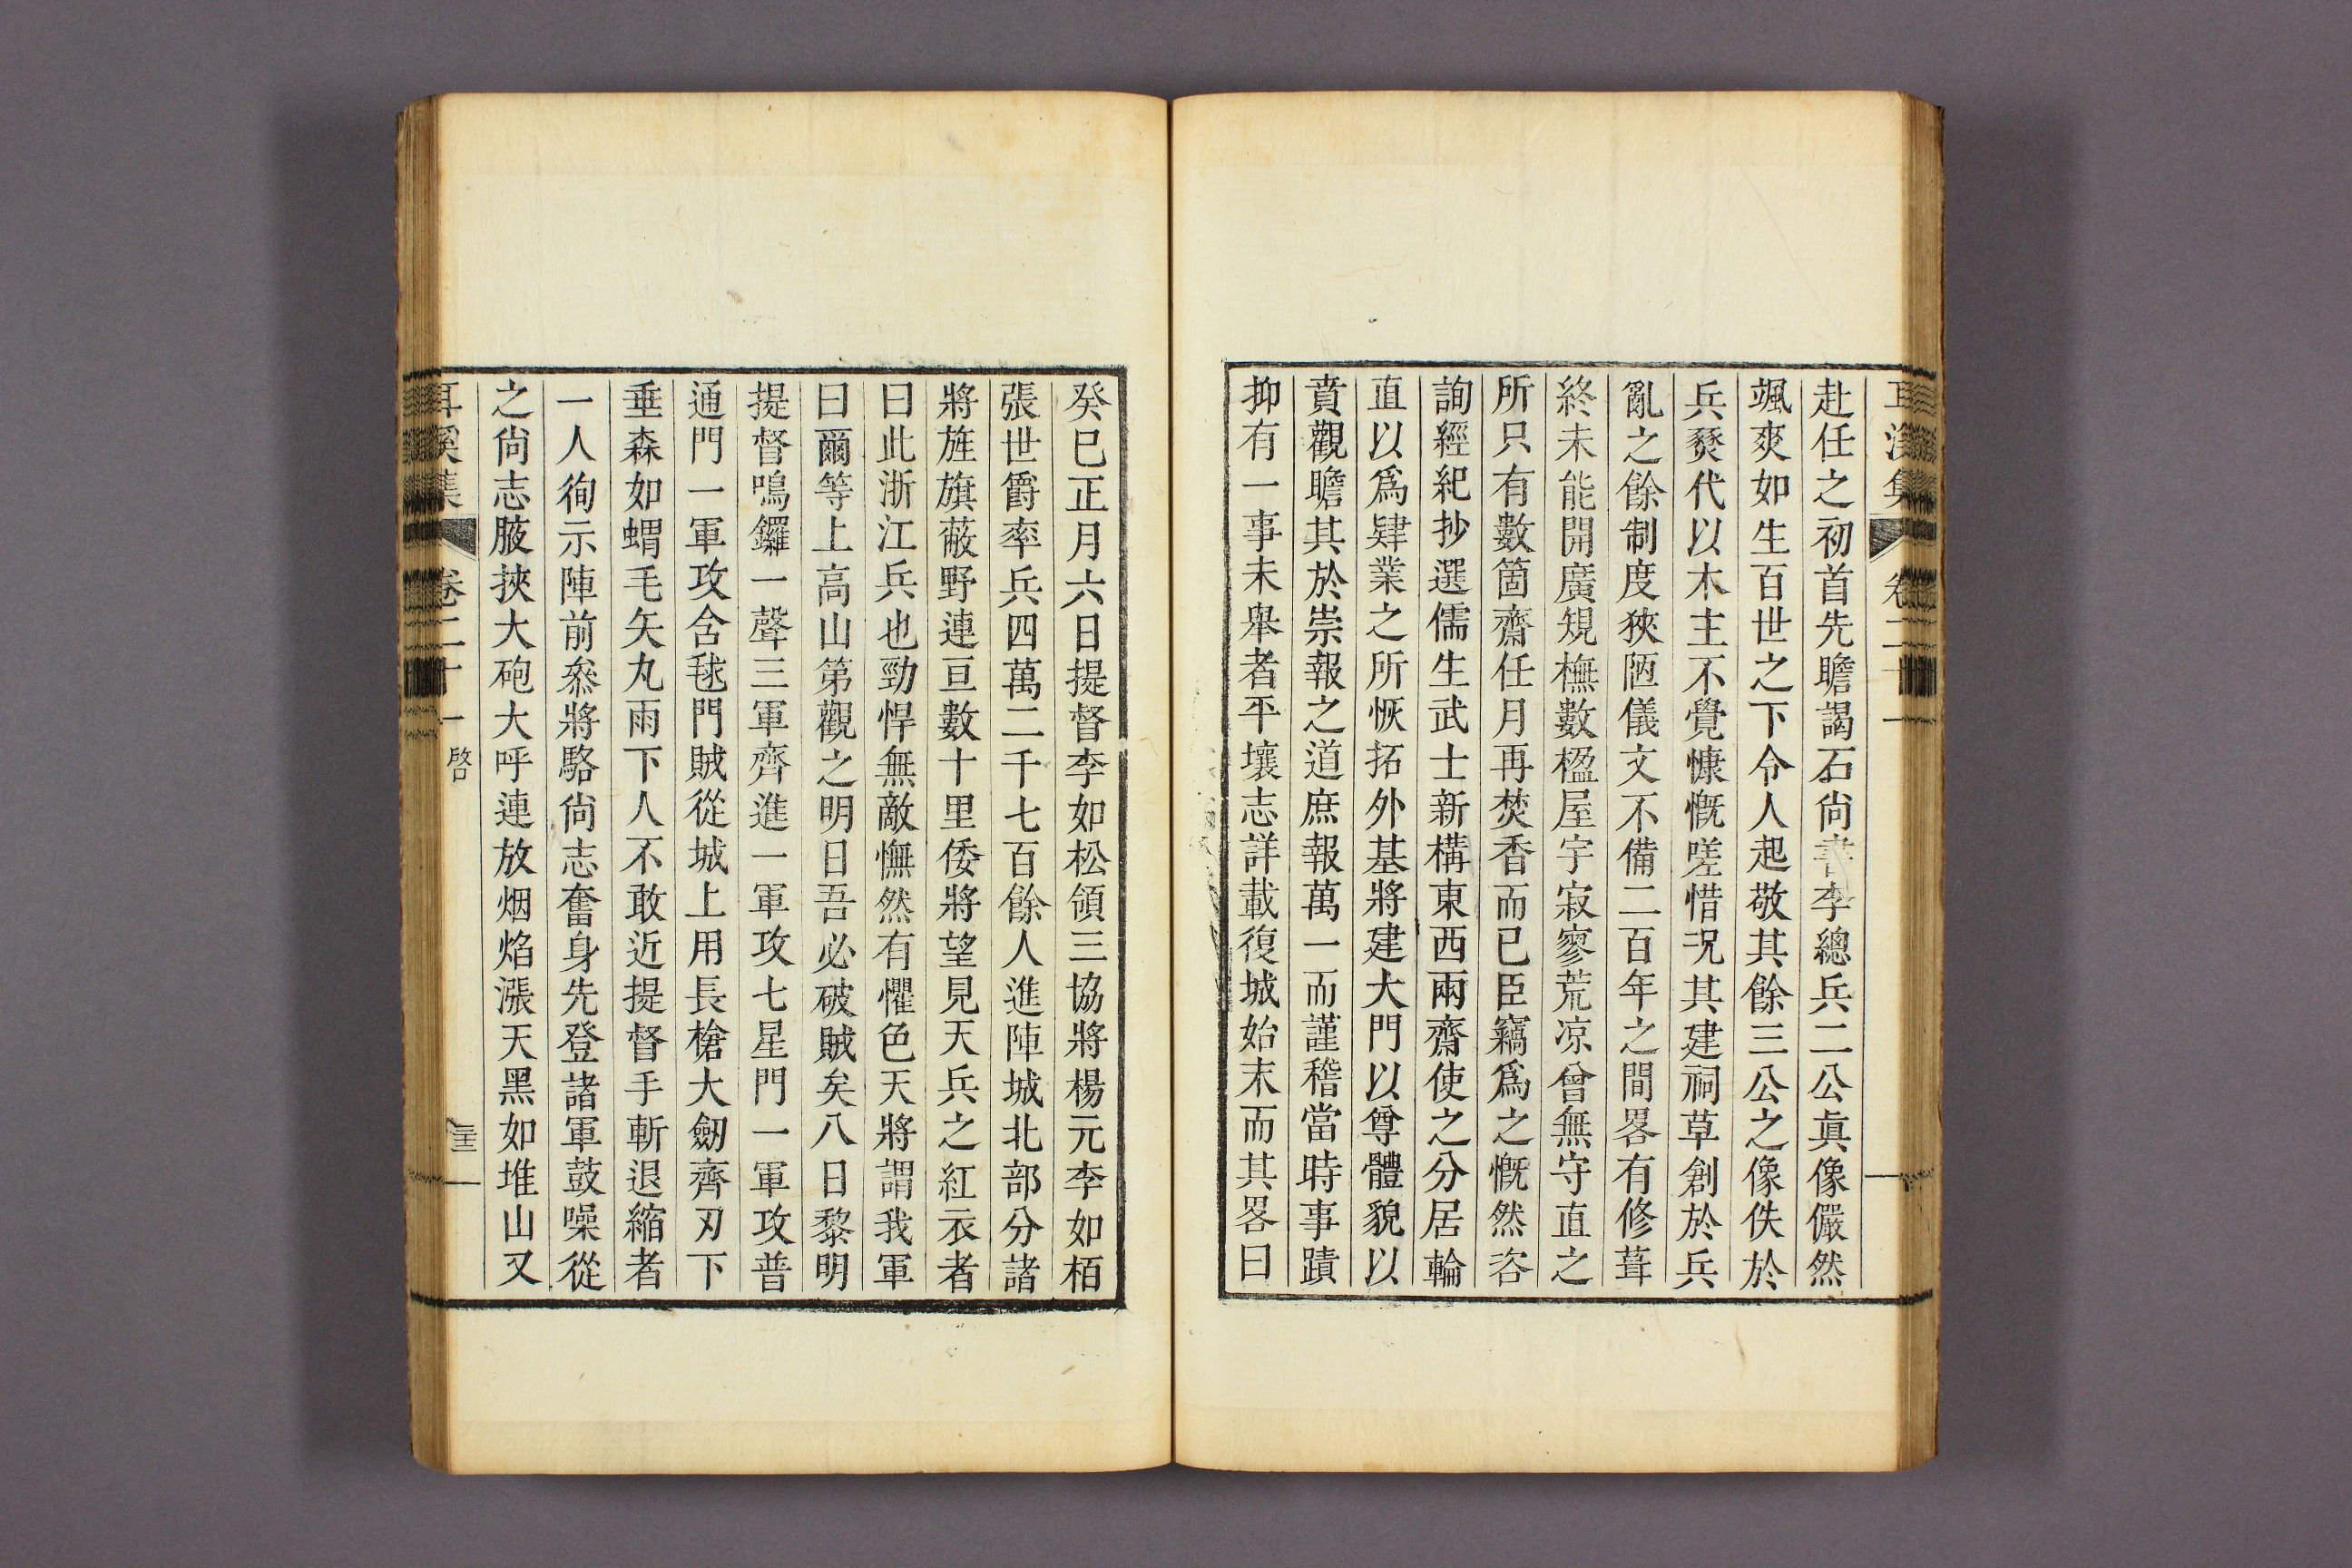 赴任之初首先瞻謁石尙書李總兵二公眞像儼然
颯爽如生百世之下令人起敬其餘三公之像佚於
兵燹代以木主不覺慷慨嗟惜况其建祠草創於兵
亂之餘制度狹陋儀文不備二百年之間畧有修葺
終未能開廣規橅數楹屋宇寂寥荒凉曾無守直之
所只有數箇齋任月再焚香而已臣竊爲之慨然咨
詢經紀抄選儒生武士新構東西兩齋使之分居輪
直以爲肄業之所恢拓外基將建大門以尊體貌以
賁觀瞻其於崇報之道庶報萬一而謹稽當時事蹟
抑有一事未舉者平壤志詳載復城始末而其畧曰
癸巳正月六日提督李如松領三協將楊元李如栢
張世爵率兵四萬二千七百餘人進陣城北部分諸
將旌旗蔽野連亘數十里倭將望見天兵之紅衣者
曰此浙江兵也勁悍無敵憮然有懼色天將謂我軍
曰爾等上高山第觀之明日吾必破賊矣八日黎明
提督鳴鑼一聲三軍齊進一軍攻七星門一軍攻普
通門一軍攻含毬門賊從城上用長槍大劒齊刃下
垂森如蝟毛矢丸雨下人不敢近提督手斬退縮者
一人徇示陣前叅將駱尙志奮身先登諸軍鼓噪從
之尙志腋挾大砲大呼連放烟焰漲天黑如堆山又
耳溪集 卷二十一 啓